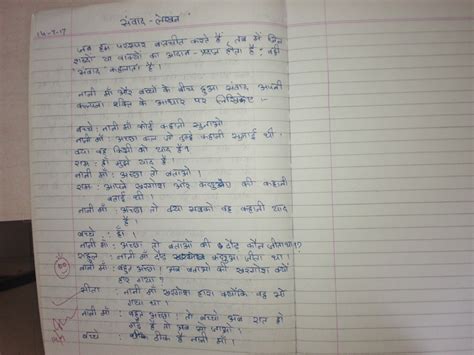 संवाद - लेखन
जब हम परस्पर बातचीत करते हैं, तब में जिन
शब्दों या वाक्यों का आदान-प्रदान होता है, वही
संवाद कहलाता है।
नानी माँ और बच्चों के बीच हुआ संवाद अपनी
कल्पना शक्ति के आधार पर लिखिए :-
बच्चे : नानी माँ कोई कहानी सुनाओ
नानी माँ : अच्छा कल जो तुम्हें कहानी सुनाई थी।
क्या वह किसी को याद है?
राम : हाँ मुझे याद है।
नानी माँ : अच्छा तो बताओ।
राम : आपने खरगोश और कछुए की कहानी
बताई थी।
नानी माँ : अच्छा तो क्या सबको वह कहानी याद
है।
बच्चे : हाँ।
नानी माँ : अच्छा, तो बताओ की दौड़ कौन जीता था?
राहुल : नानी माँ दौड़ कछुआ जीता था।
नानी माँ : बहुत अच्छा। अब बताओ की खरगोश क्यों
हार गया?
सीता : नानी माँ खरगोश हारा क्योंकि वह सो
गया था।
नानी माँ : बहुत अच्छा। तो बच्चे अब रात हो
गई है तो अब सो जाओ।
बच्चे : ठीक है नानी माँ।